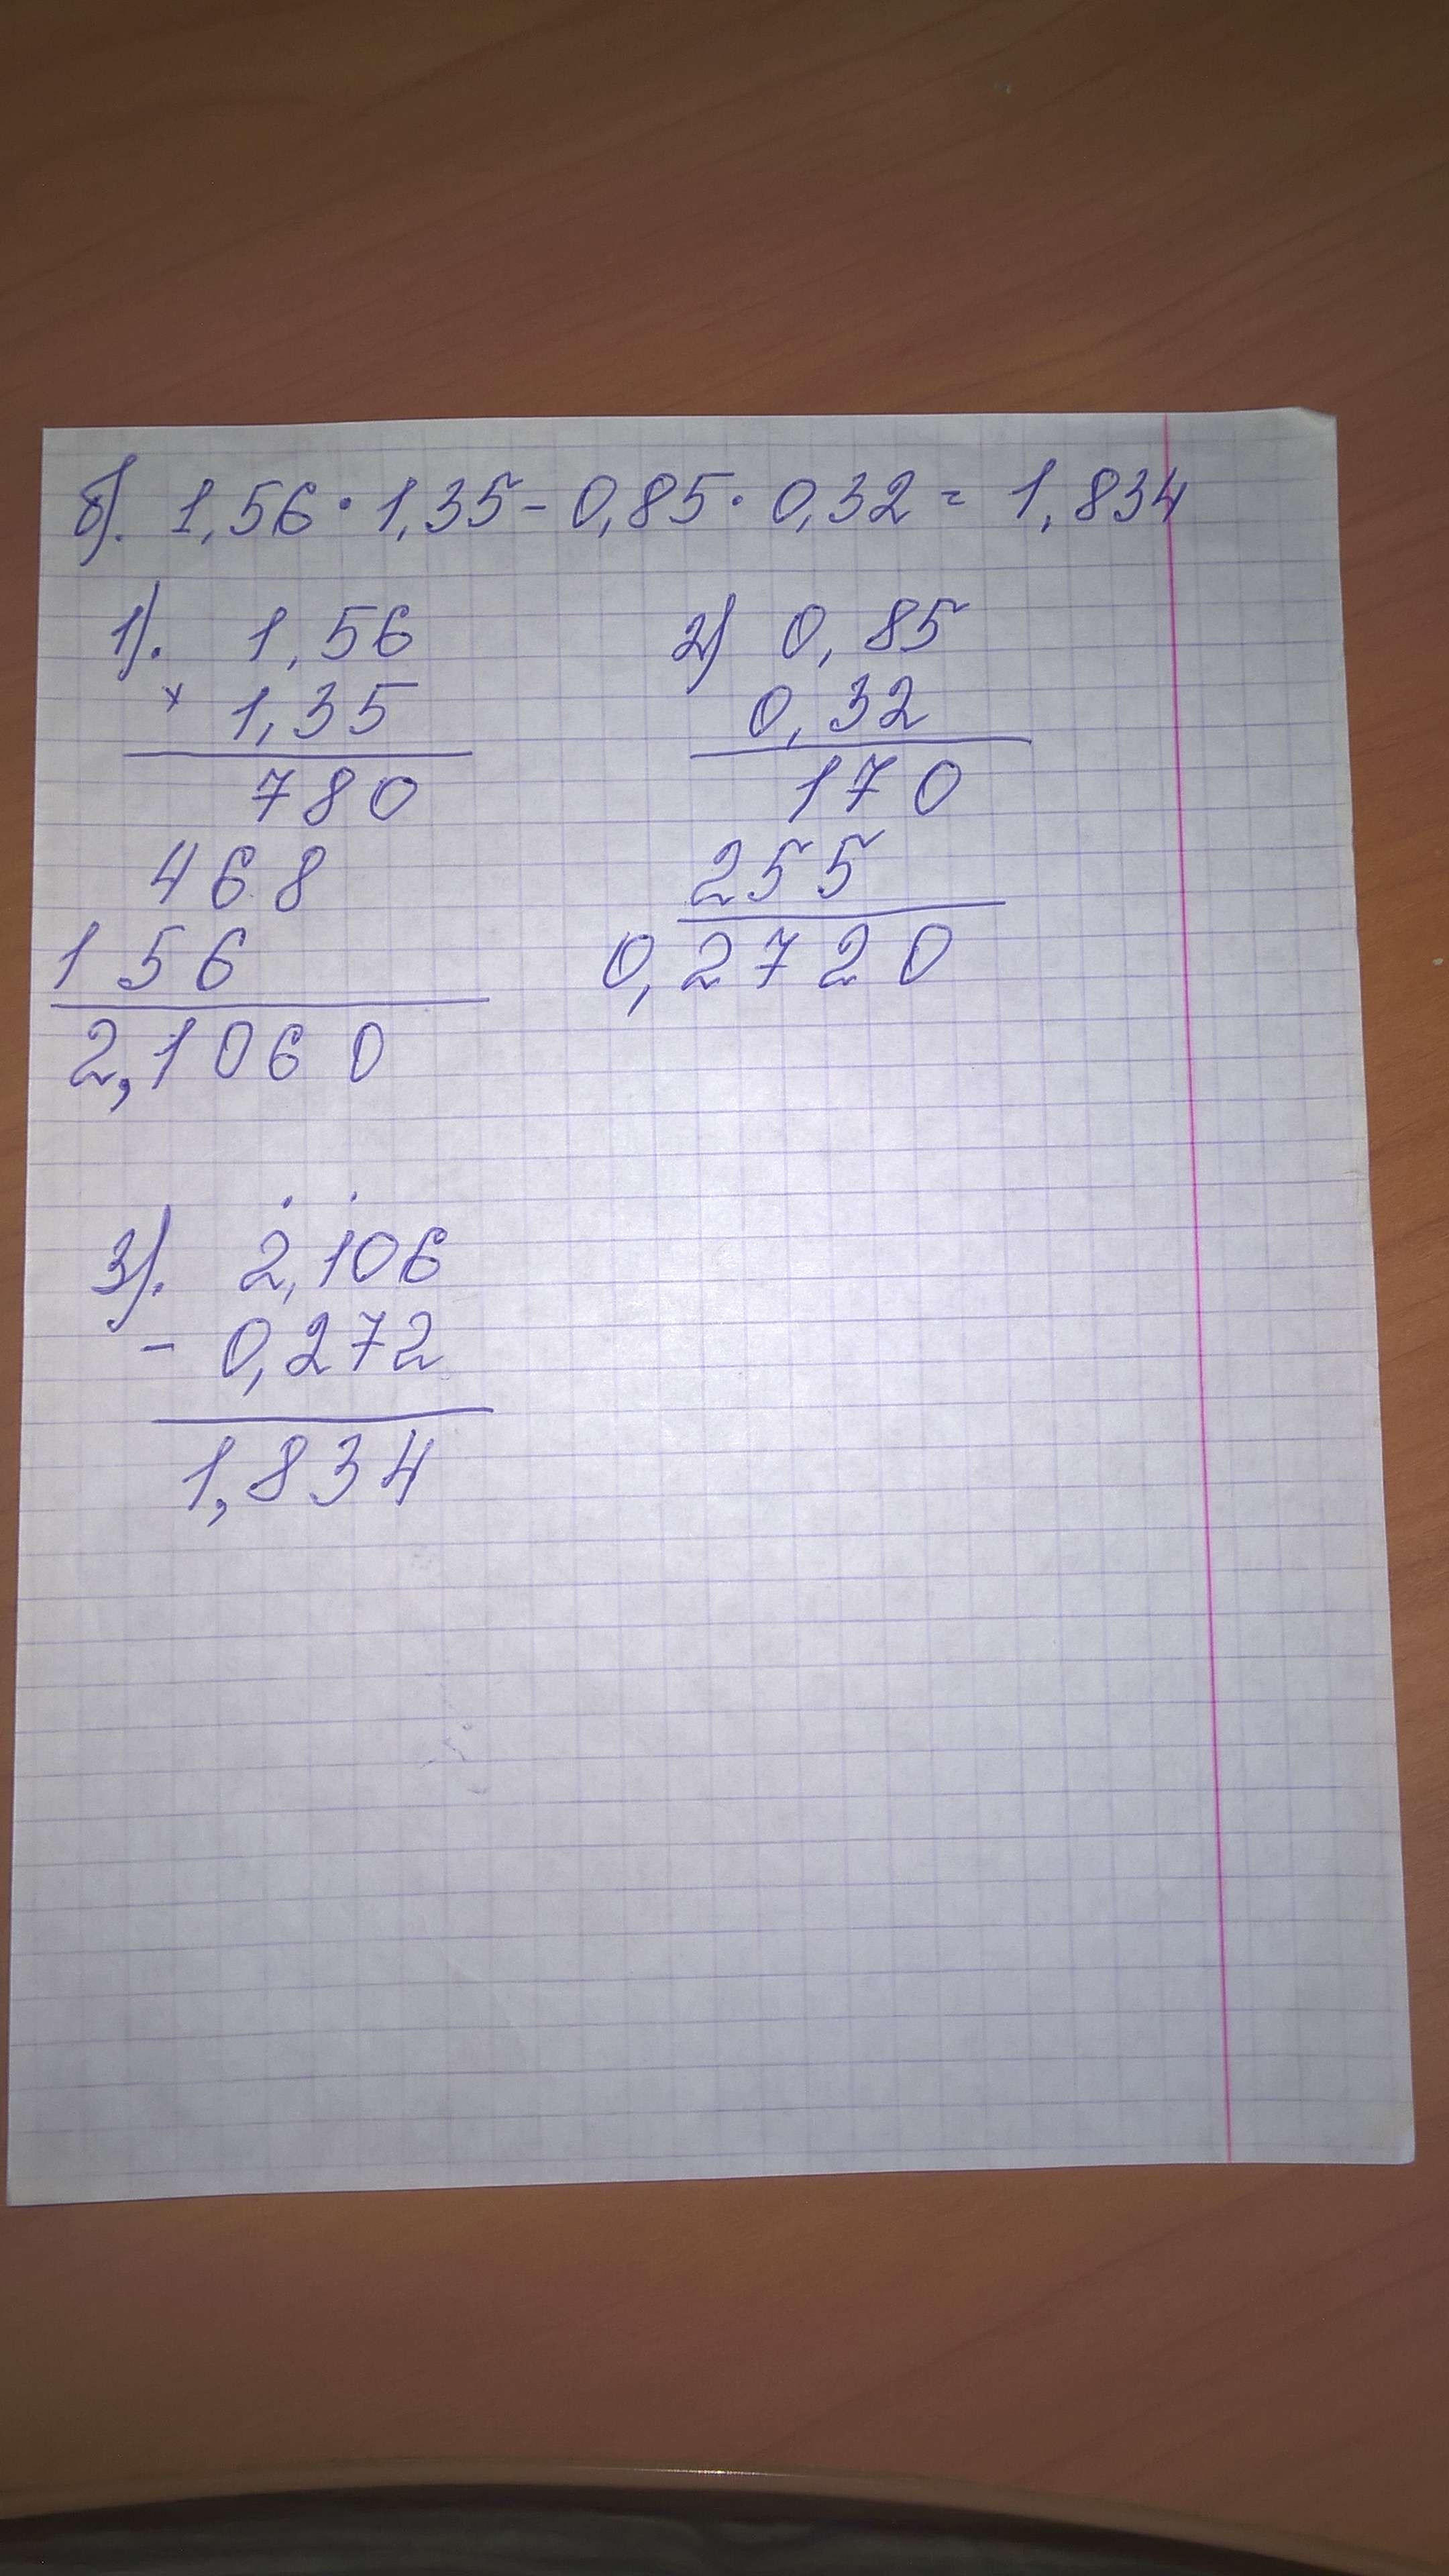 б). 1,56 · 1,35 - 0,85 · 0,32 = 1,834
1). 1,56
× 1,35
780
468
156
2,1060
2) 0,85
0,32
170
255
0,2720
3). 2,106
- 0,272
1,834